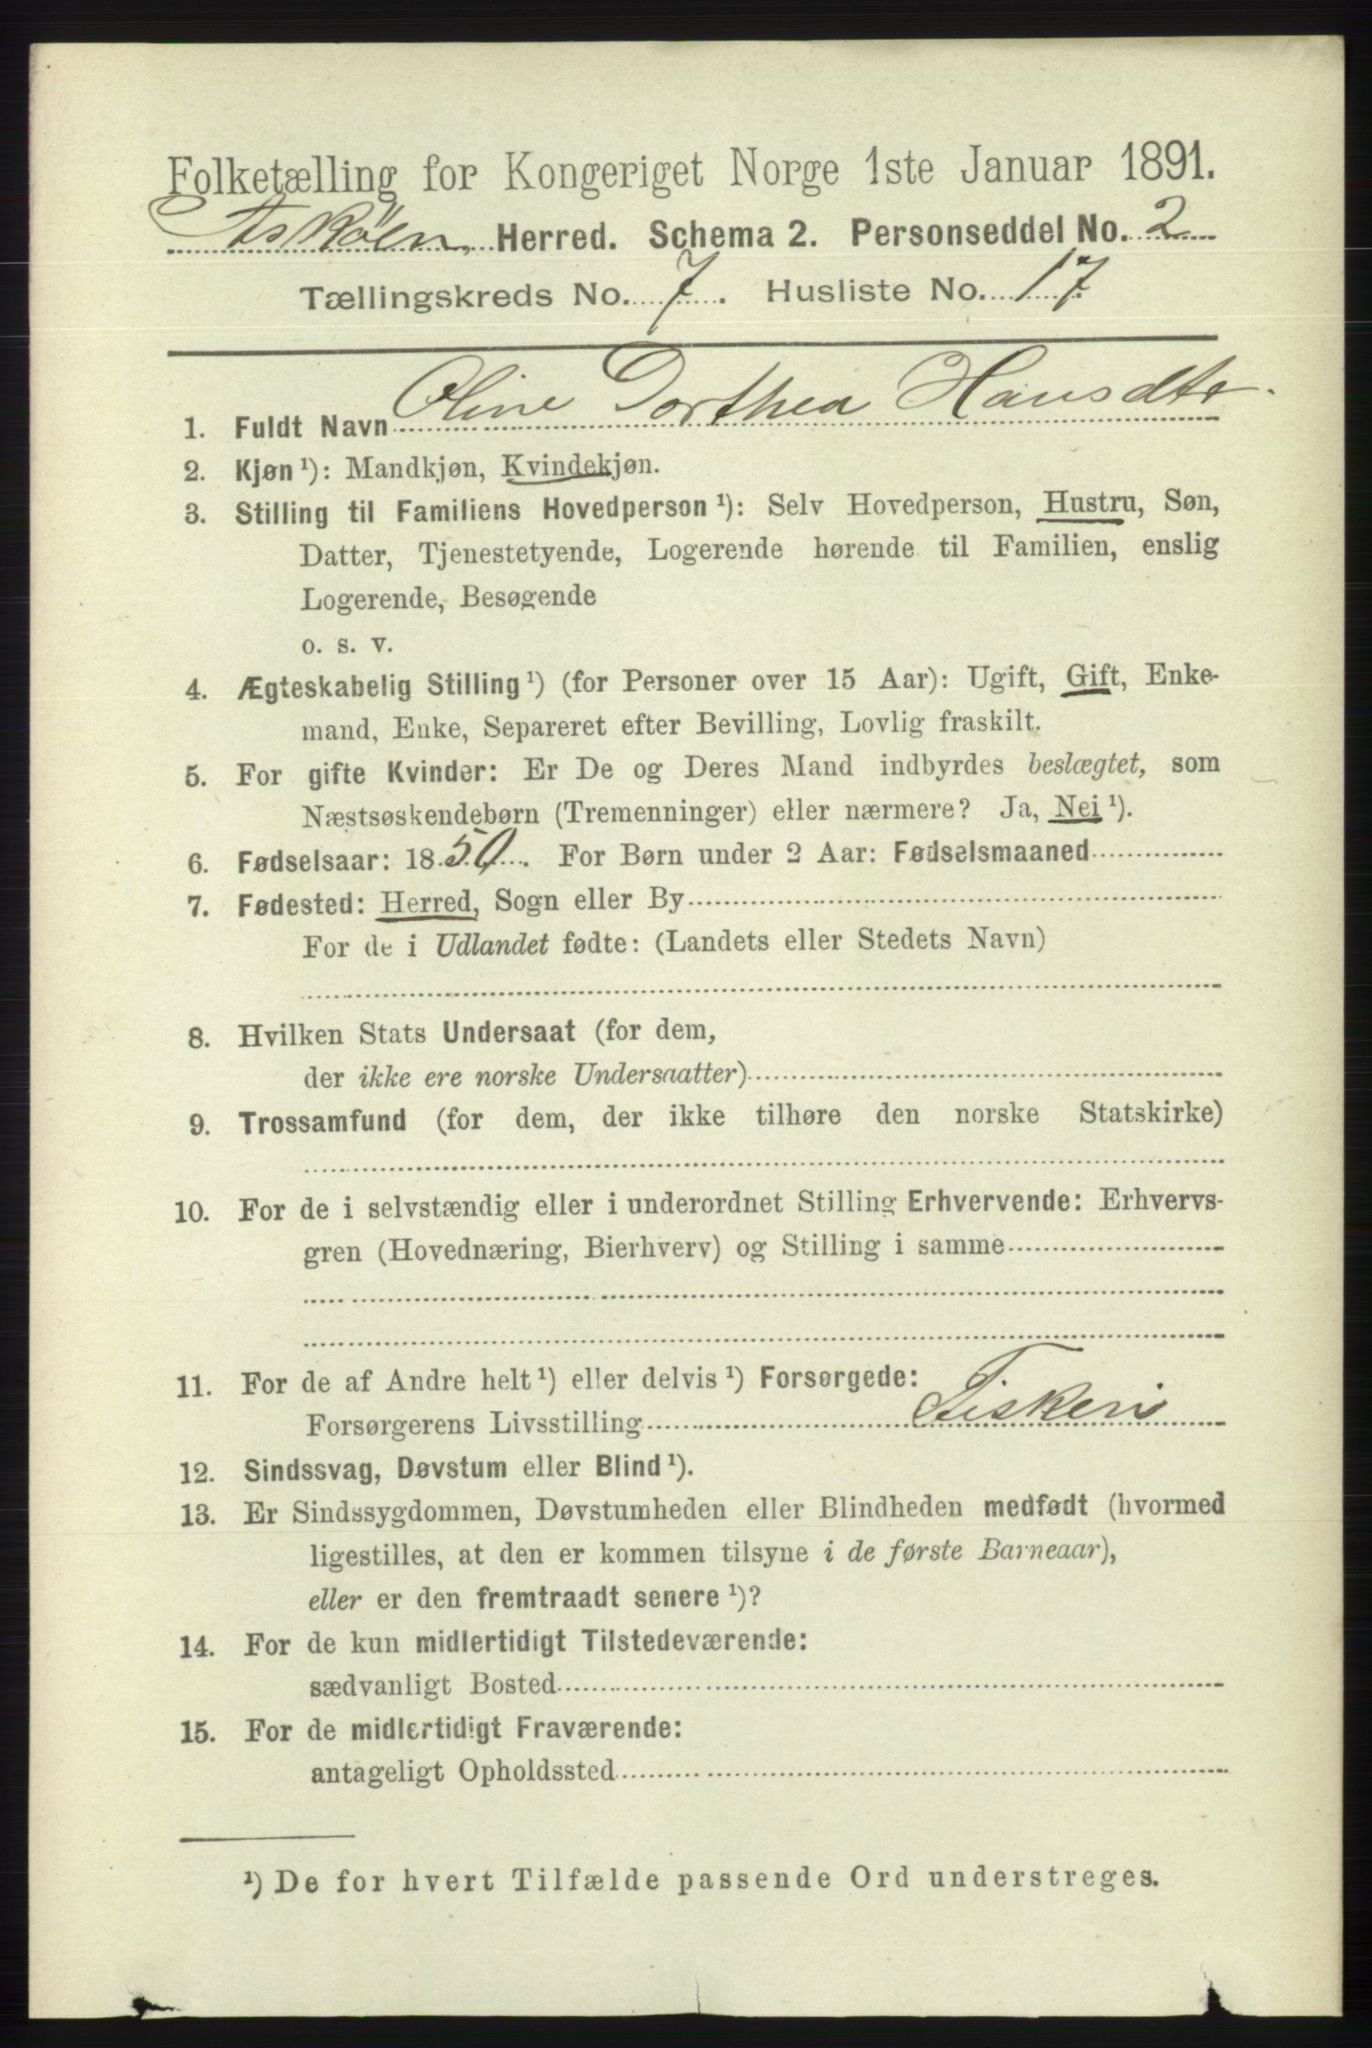 Folketælling for Kongeriget Norge 1ste Januar 1891.
Askøen Herred. Schema 2. Personseddel No. 2
Tællingskreds No. 7. Husliste No. 17
1. Fuldt Navn Oline Dorthea Hansdtr.
2. Kjøn ¹): Mandkjøn, Kvindekjøn.
3. Stilling til Familiens Hovedperson ¹): Selv Hovedperson, Hustru, Søn,
Datter, Tjenestetyende, Logerende hørende til Familien, enslig
Logerende, Besøgende
o. s. v.
4. Ægteskabelig Stilling ¹) (for Personer over 15 Aar): Ugift, Gift, Enke-
mand, Enke, Separeret efter Bevilling, Lovlig fraskilt.
5. For gifte Kvinder: Er De og Deres Mand indbyrdes beslægtet, som
Næstsøskendebørn (Tremenninger) eller nærmere? Ja, Nei ¹).
6. Fødselsaar: 1850. For Børn under 2 Aar: Fødselsmaaned
7. Fødested: Herred, Sogn eller By
For de i Udlandet fødte: (Landets eller Stedets Navn)
8. Hvilken Stats Undersaat (for dem,
der ikke ere norske Undersaatter)
9. Trossamfund (for dem, der ikke tilhøre den norske Statskirke)
10. For de i selvstændig eller i underordnet Stilling Erhvervende: Erhvervs-
gren (Hovednæring, Bierhverv) og Stilling i samme
11. For de af Andre helt ¹) eller delvis ¹) Forsørgede:
Forsørgerens Livsstilling Fiskeri
12. Sindssvag, Døvstum eller Blind ¹).
13. Er Sindssygdommen, Døvstumheden eller Blindheden medfødt (hvormed
ligestilles, at den er kommen tilsyne i de første Barneaar),
eller er den fremtraadt senere ¹)?
14. For de kun midlertidigt Tilstedeværende:
sædvanligt Bosted
15. For de midlertidigt Fraværende:
antageligt Opholdssted
¹) De for hvert Tilfælde passende Ord understreges.